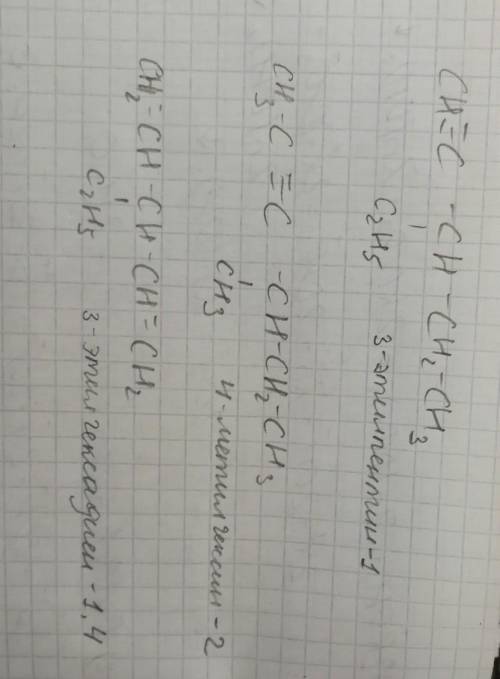 CH≡C-CH-CH₂-CH₃
C₂H₅ 3-этилпентин-1
CH₃-C≡C-CH-CH₂-CH₃
CH₃ 4-метилгексин-2
CH₂=CH-CH-CH=CH₂
C₂H₅ 3-этилгексадиен-1,4